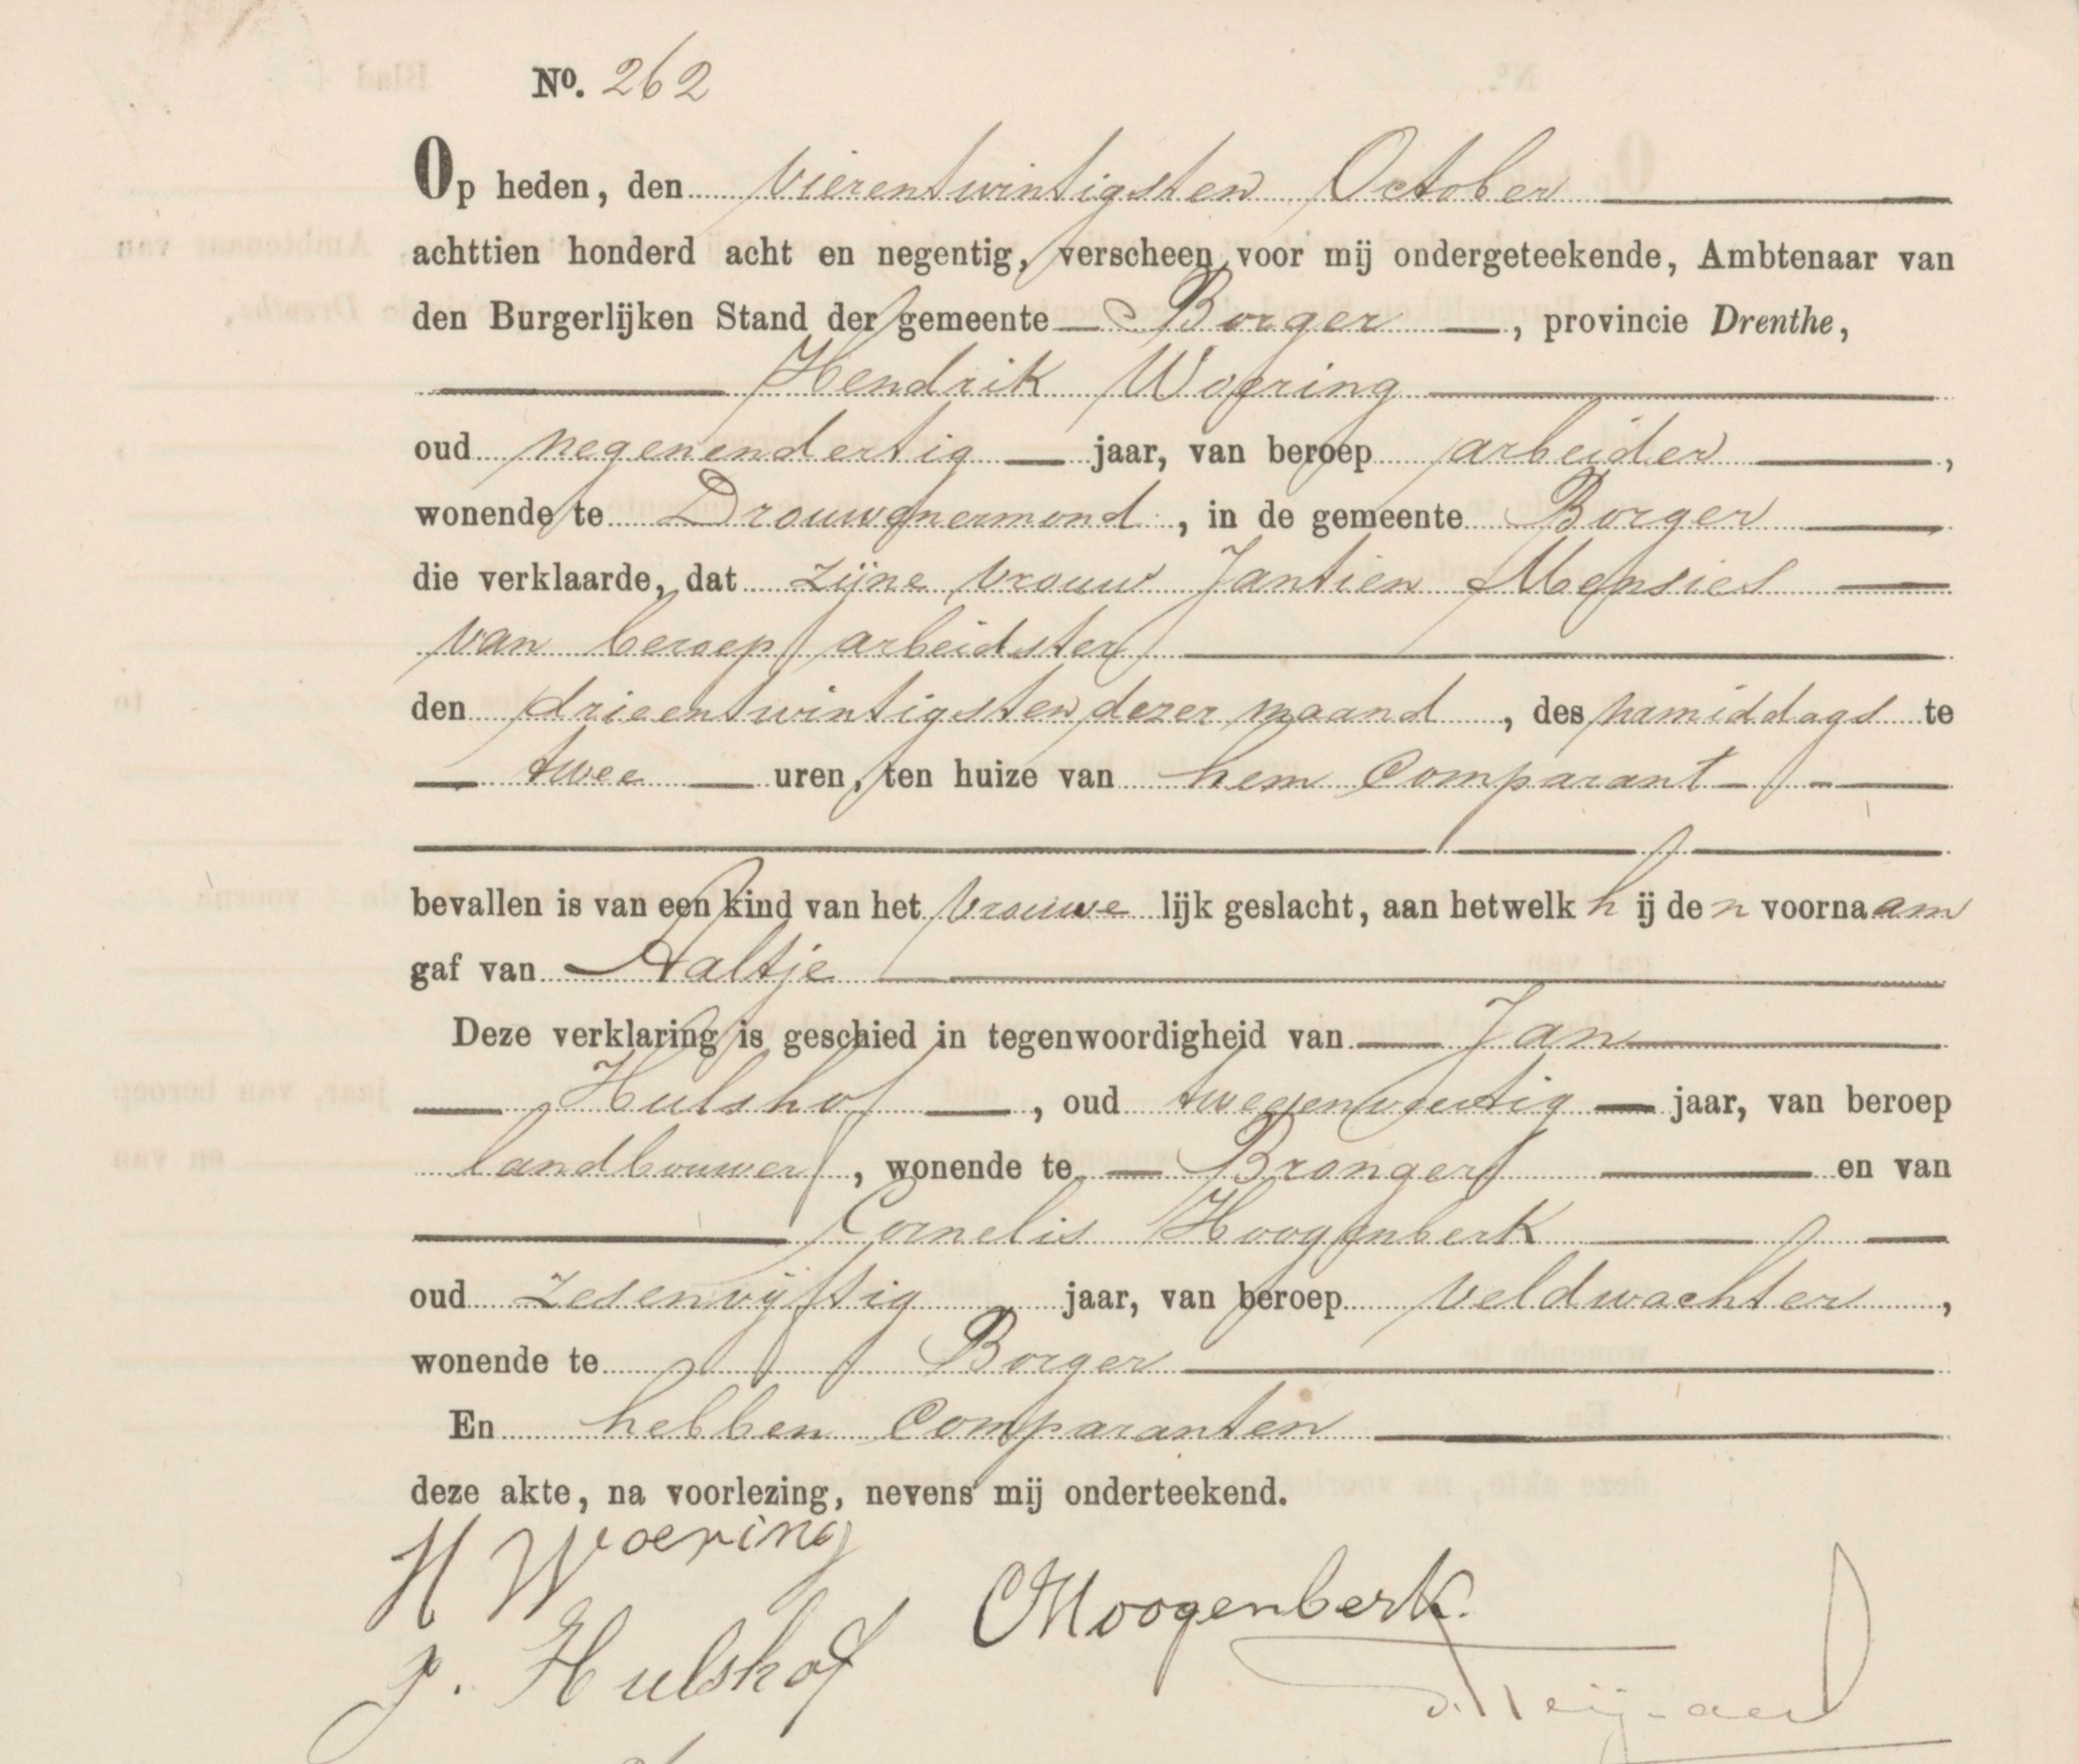 No. 262
Op heden, den vierentwintigsten October
achttien honderd acht en negentig, verscheen voor mij ondergeteekende, Ambtenaar van
den Burgerlijken Stand der gemeente Borger, provincie Drenthe,
Hendrik Woering
oud negenendertig jaar, van beroep arbeider,
wonende te Drouwenermond, in de gemeente Borger
die verklaarde, dat zijne vrouw Jantien Mensies
van beroep arbeidster
den drieentwintigsten dezer maand, des namiddags te
twee uren, ten huize van hem Comparant
bevallen is van een kind van het vrouwelijk geslacht, aan hetwelk hij den voornaam
gaf van Aaltje
Deze verklaring is geschied in tegenwoordigheid van Jan
Hulshof, oud tweeenveertig jaar, van beroep
landbouwer, wonende te Bronger en van
Cornelis Hoogenberk
oud zesenvijftig jaar, van beroep veldwachter,
wonende te Borger
En hebben Comparanten
deze akte, na voorlezing, nevens mij onderteekend.
H Woering
CHoogenberk.
J. Hulshof